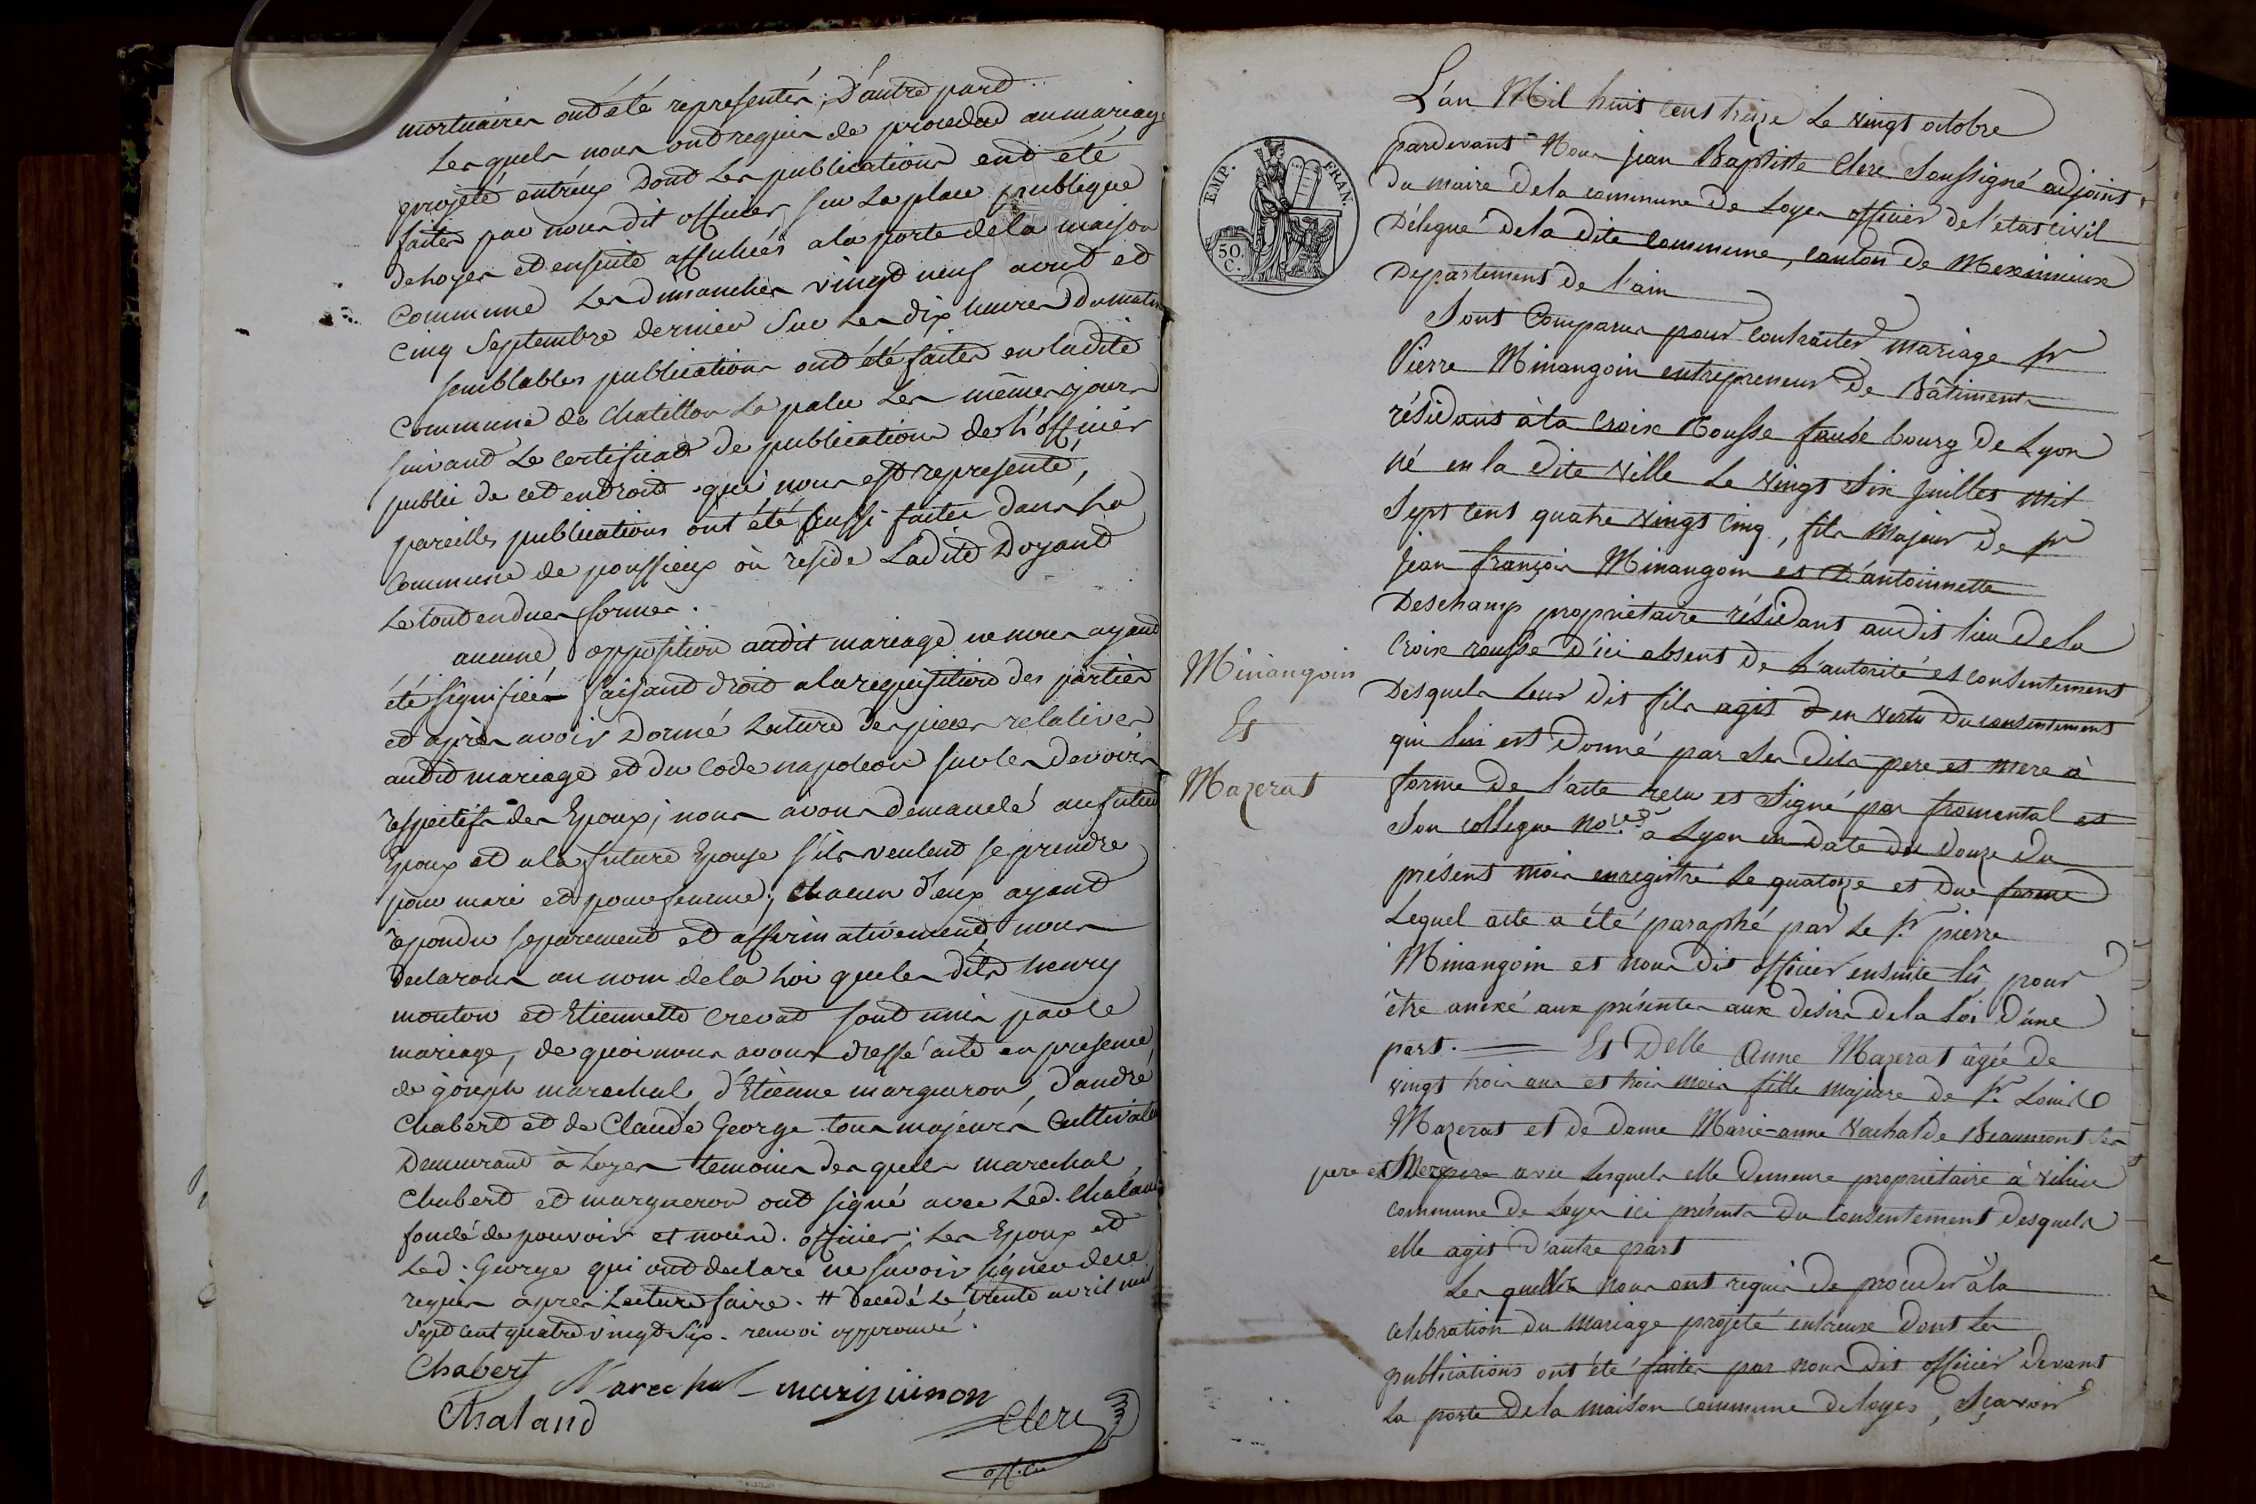 mortuaires ont été representés, D'autre part
Les quels nous ont requis de proceder au mariage
projeté entr'eux Dont Les publications ont été
faites par nous dit officier sur La place publique
de Loyes et ensuite affichées a la porte de la maison
Commune Les dimanches vingt neuf aout et
Cinq Septembre dernier Sur Les dix heures Du matin
semblables publications ont été faites en ladite
Commune de Chatillon La palu Les mêmes jours
suivant Le certificat de publications de L'officier
public de cet endroit qui nous est representé,
pareilles publications ont été aussi faites dans La
Commune de poussieux où reside Ladite Doyand
Le tout en dues formes.
aucune opposition audit mariage ne nous ayant
été signifiée faisant droit a la requisition des parties
et après avoir Donné Lecture des pieces relatives
audit mariage et du Code napoleon sur les devoirs
respectifs des Epoux; nous avons demandé au futur
Epoux et a la future Epouse s'ils veulent se prendre
pour mari et pour femme; chacun d'eux ayant
repondu separement et affirmativement, nous
declarons au nom de la Loi que les dits henry
mouton et Etiennette Crevat sont unis par le
mariage, de quoi nous avons dressé acte en presence
de joseph marechal, d'Etienne margueron, d'andré
Chabert et de Claude George tous majeurs Cultivateurs
Demeurant à Loyes temoins des quels marechal
Chabert et margueron ont signé avec Led. Chaland
fondé de pouvoir et nous d. officier; Les Epoux et
Led. George qui ont declaré ne savoir signer de ce
requis apres Lecture faire. # decedé Le trente avril mil
sept cent quatre vingt six. renvoi approuvé.
Chabert Marechal marguiron
Chaland Clerc
off. civ
EMP. FRAN.
50.
C.
Minangoin
Et
Mazerat
L'an Mil huit cent treize Le vingt octobre
pardevant Nous jean Baptiste Clerc Soussigné adjoint
du maire De la commune De Loyes officier de l'état civil
Délegué de la dite Commune, canton de Meximieux
Departement De l'ain
Sont Comparus pour Contracter mariage Sr
Pierre Minangoin entrepreneur De Bâtiments
résidant à la Croix Rousse fauxbourg De Lyon
né en la dite Ville Le vingt Six juillet Mil
Sept cent quatre vingt cinq, fils Majeur De Sr
Jean françois Minangoin et D'antoinnette
Deschamp propriétaire résidant audit lieu De la
Croix rousse D'ici absent De L'autorité et consentement
Desquels leur dit fils agit en vertu du consentement
qui lui est Donné par Ses dits pere et mere à
forme De l'acte reçu et Signé par fromental et
Son collegue nores à Lyon en Date du Douze Du
présent mois enregistré Le quatorze et Due forme
Lequel acte a été paraphé par Le Sr. pierre
Minangoin et nous Dit officier ensuite lû pour
être anexé aux présentes aux desirs De la loi D'une
part. — Et Delle Anne Mazerat âgée de
vingt trois ans et trois mois fille majeure de Sr. Louis
Mazerat et De Dame Marie-anne Vachat de Beaumont Ses
pere et Mere avec Lesquels elle Demeure propriétaire à Vilieu
commune De Loyes ici présents Du Consentement Desquels
elle agit D'autre part
Les quels nous ont requis De proceder à la
celebration du Mariage projeté entreux Dont Les
publications ont été faites par nous Dit officier Devant
La porte De la Maison commune De loyes, Sçavoir